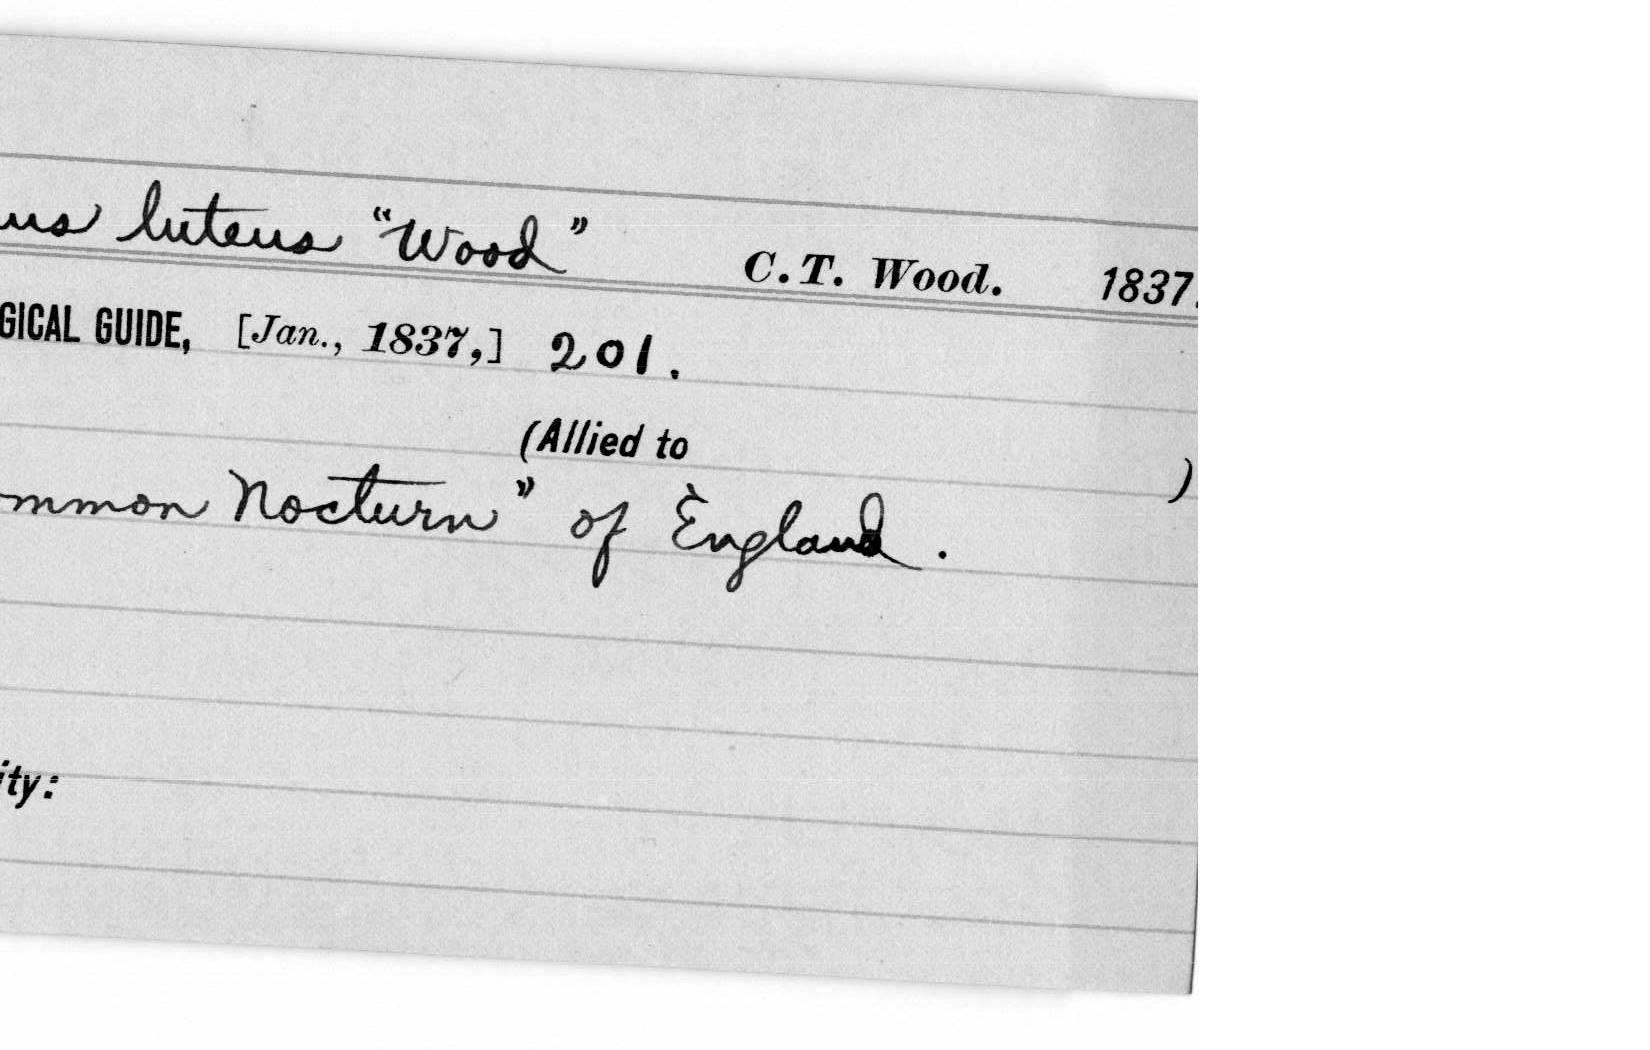 us luteus "Wood" C. T. Wood. 1837.
GICAL GUIDE, [Jan., 1837,] 201.
(Allied to )
ommon Nocturn" of England.
ity: